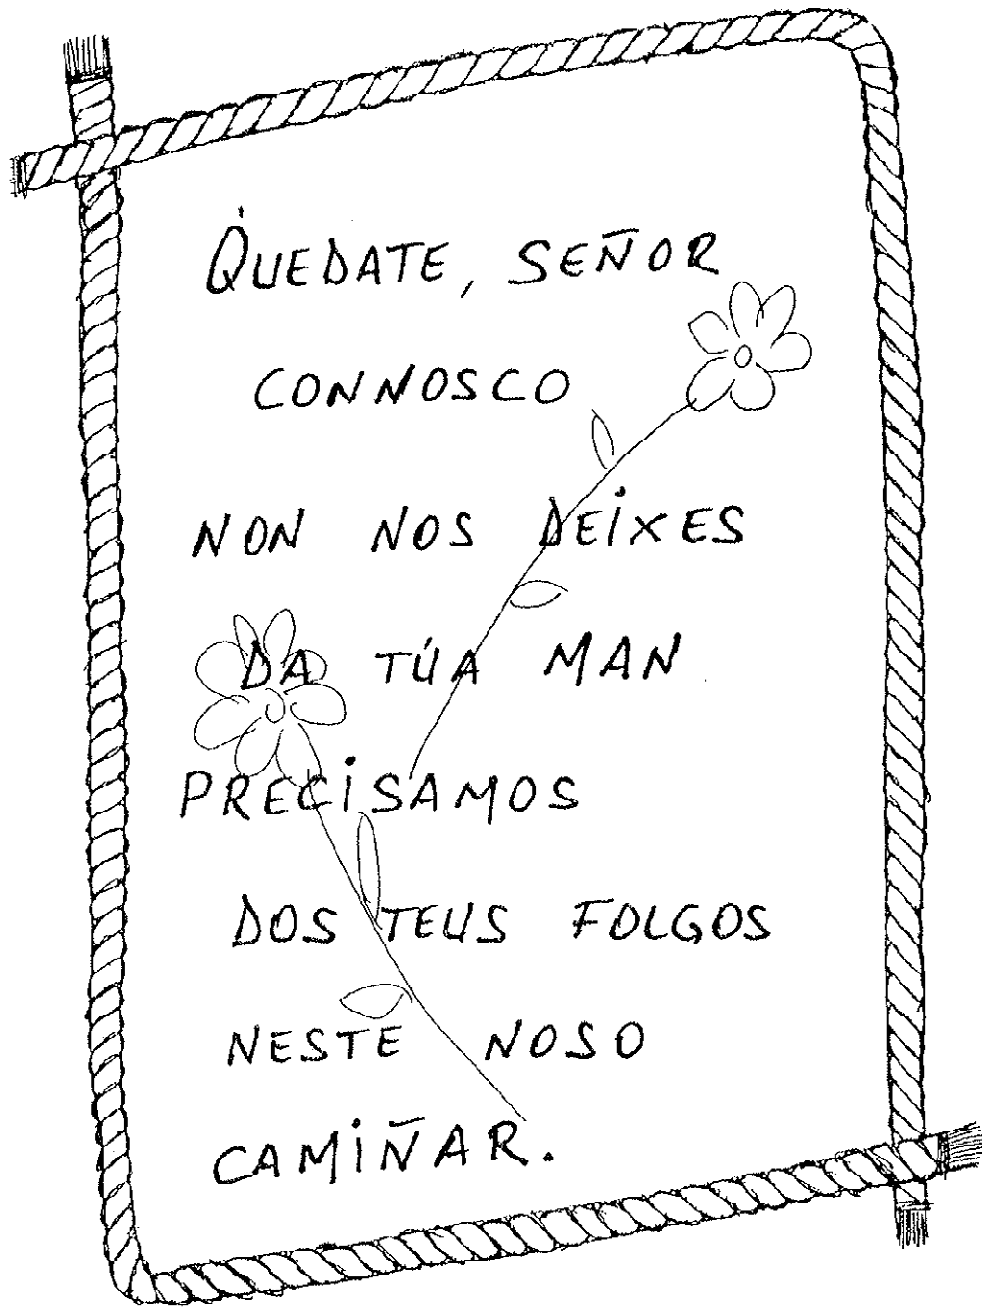 QUEDATE, SEÑOR
CONNOSCO
NON NOS DEIXES
DA TÚA MAN
PRECISAMOS
DOS TEUS FOLGOS
NESTE NOSO
CAMIÑAR.